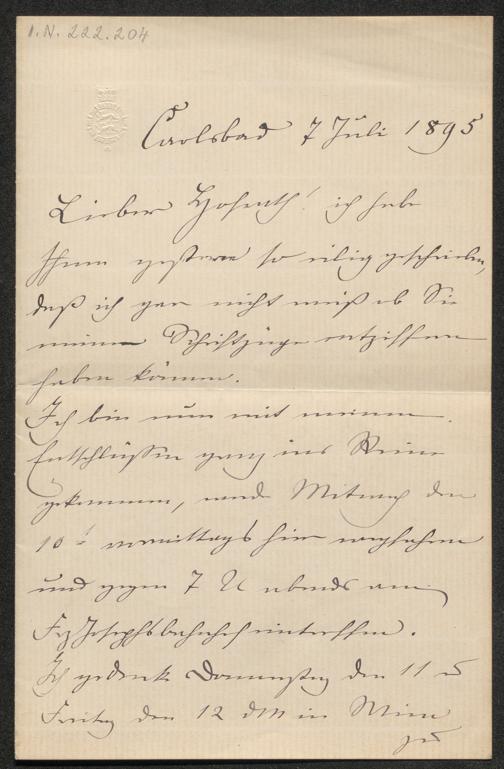 I.N. 222.204
Carlsbad 7 Juli 1895
Lieber Hofrath! ich habe
Ihnen gestern so eilig geschrieben,
daß ich gar nicht weiß ob Sie
meine Schriftzüge entziffern
haben können.
Ich bin nun mit meinen
Entschlüssen ganz ins Reine
gekommen, werde Mitwoch den
10t vormittags hier wegfahren
und gegen 7 U abends am
Fz Josephsbahnhof eintreffen.
Ich gedenke Donnerstag den 11 u
Freitag den 12 dM in Wien
zu